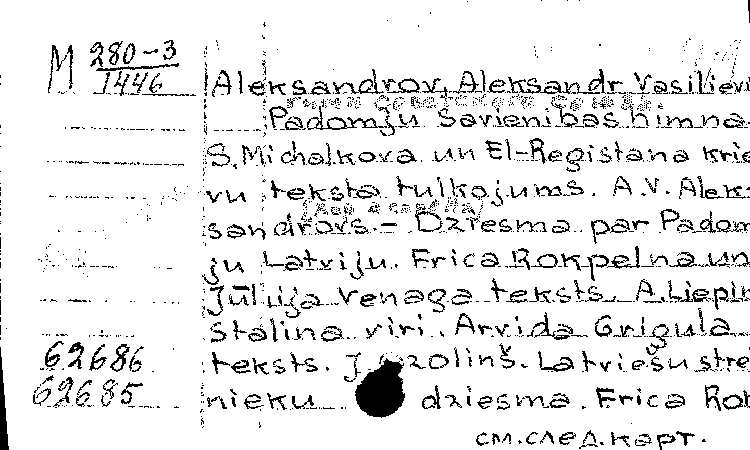 M 280-3
1446
Aleksandrov, Aleksandr Vasiljevi
гимн советского союза.
Padomju Savienības himna
S. Michalkova un El-Registana krie
vu teksta tulkojums. A.V. Alek
(хор a capella)
sandrovs. - Dziesma par Padom
ju Latviju. Frica Rokpelņa un
Jūlija Vanaga teksts. A. Liepiņ
Staļina vīri. Arvīda Griguļa
62686 teksts. J. Ozoliņš. Latviešu strē
62685 nieku dziesma. Frica Rok
см. след. карт.